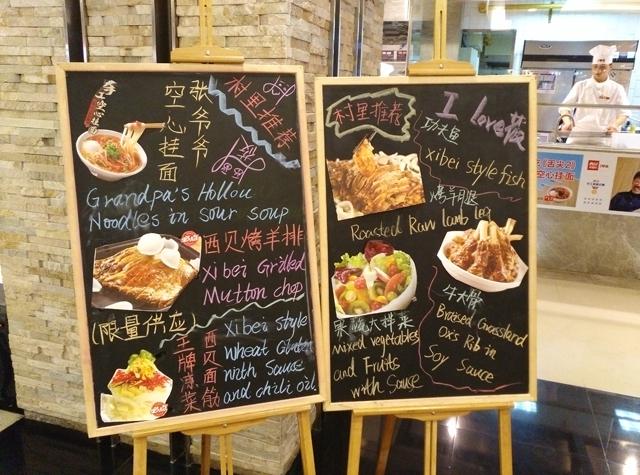 手工空心挂面
张爷爷
空心挂面
村里推荐
Grandpa's Hollou
Noodles in sour soup
西贝烤羊排
Xibei Grilled
Mutton chop
(限量供应)
王牌凉菜
西贝面筋
Xibei style
wheat Gluten
with Sauce
and chili oil
村里推荐
I love 莜
功夫鱼
xibei style fish
烤羊腿
Roasted Raw lamb leg
果蔬大拌菜
mixed vegetables
and Fruits
with Sauce
牛大骨
Braised Grassland
Ox's Rib in
Soy Sauce
《舌尖2》
空心挂面